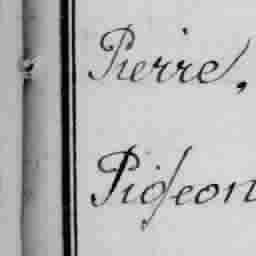 Pierre,
Pigeon